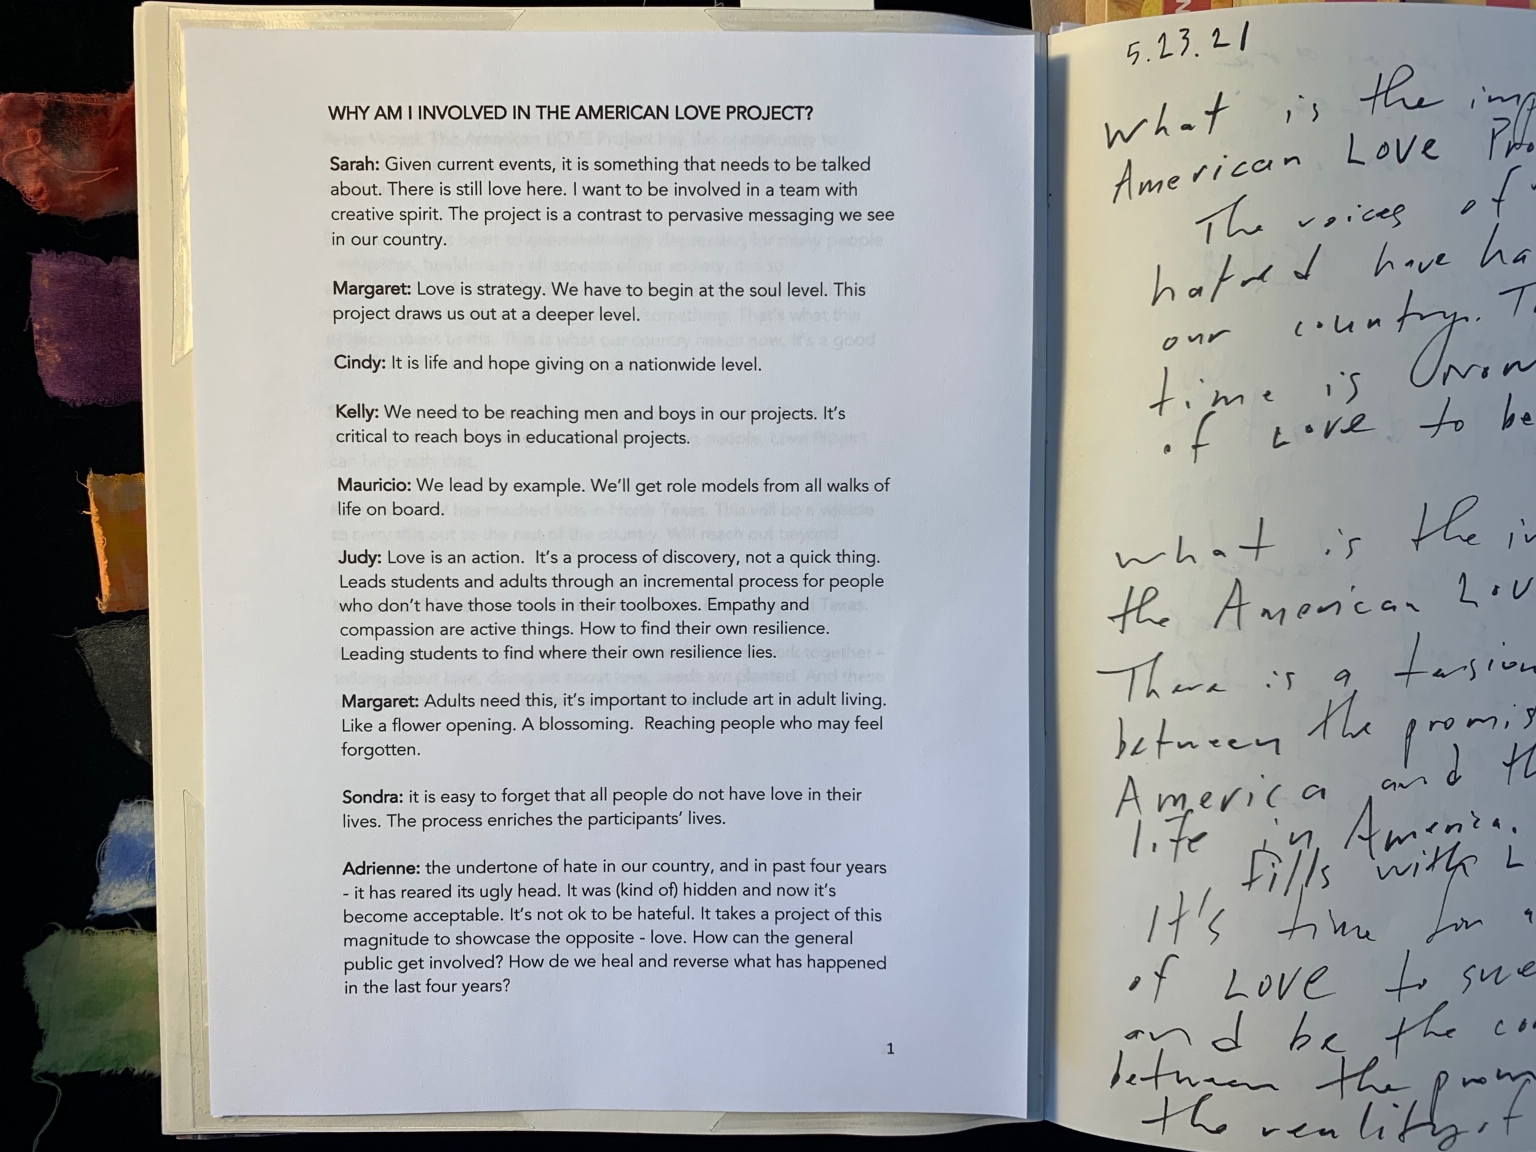 WHY AM I INVOLVED IN THE AMERICAN LOVE PROJECT?
Sarah: Given current events, it is something that needs to be talked
about. There is still love here. I want to be involved in a team with
creative spirit. The project is a contrast to pervasive messaging we see
in our country.
Margaret: Love is strategy. We have to begin at the soul level. This
project draws us out at a deeper level.
Cindy: It is life and hope giving on a nationwide level.
Kelly: We need to be reaching men and boys in our projects. It's
critical to reach boys in educational projects.
Mauricio: We lead by example. We'll get role models from all walks of
life on board.
Judy: Love is an action.  It's a process of discovery, not a quick thing.
Leads students and adults through an incremental process for people
who don't have those tools in their toolboxes. Empathy and
compassion are active things. How to find their own resilience.
Leading students to find where their own resilience lies.
Margaret: Adults need this, it's important to include art in adult living.
Like a flower opening. A blossoming.  Reaching people who may feel
forgotten.
Sondra: it is easy to forget that all people do not have love in their
lives. The process enriches the participants' lives.
Adrienne: the undertone of hate in our country, and in past four years
- it has reared its ugly head. It was (kind of) hidden and now it's
become acceptable. It's not ok to be hateful. It takes a project of this
magnitude to showcase the opposite - love. How can the general
public get involved? How de we heal and reverse what has happened
in the last four years?
1
5.23.21
What is the
American LOVE
The voices of
hatred have
our country.
time is
of LOVE to be
what is the
the American
There is a
between the
America and
life in America.
fills with
It's time for
of LOVE to
and be the
between the
the reality of